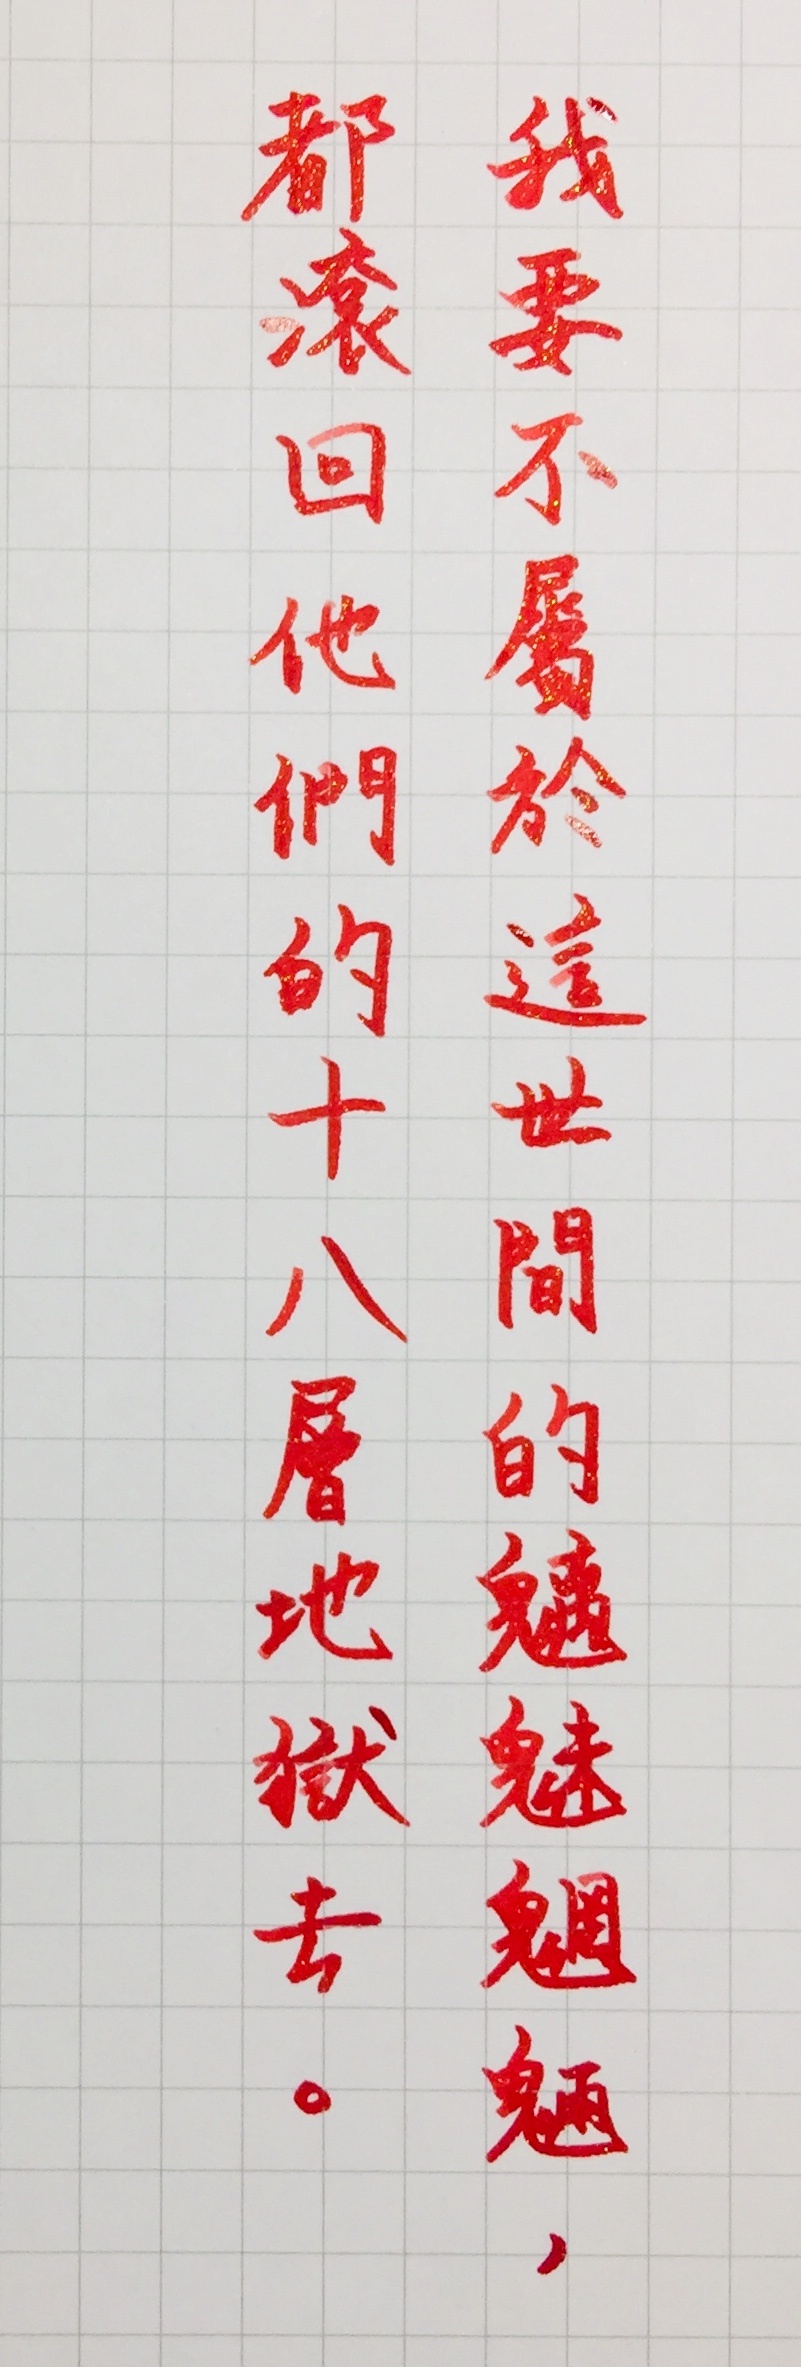 我要不屬於這世間的魑魅魍魎，
都滾回他們的十八層地獄去。